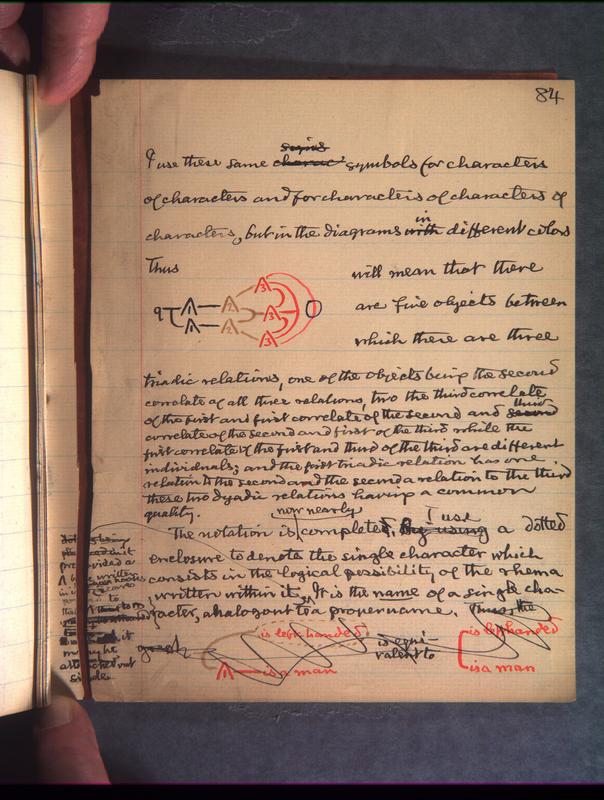 84
signs
I use these same charac symbols for characters
of characters and for characters of characters of
in
characters, but in the diagrams with different colors
Thus
will mean that there
3
1 2
q 3
1 2
3
are five objects between
which there are three
triadic relations, one of the objects being the second
correlate of all three relations, two the third correlate
third
of the first and first correlate of the second and second
correlate of the second and first of the third while the
first correlate of the first and third of the third are different
individuals; and the first triadic relation has one
relation to the second and the second a relation to the third
these two dyadic relations having a common
quality.
now nearly
I use
The notation is completed, By using a dotted
enclosure to denote the single character which
consists in the logical possibility of the rhema
written within it. It is the name of a single cha-
racter, analogous to a proper name. Thus, the
graph
is left handed
1 is a man
is equi-
valent to
is left handed
is a man
it
might be
attached out
side